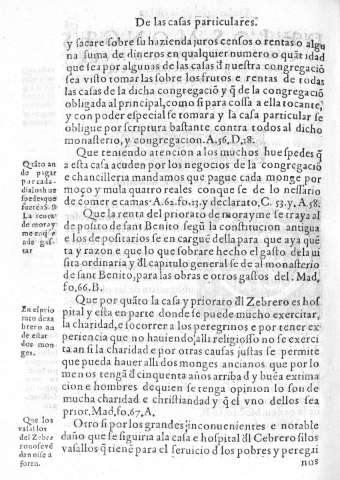 De las casas particulares.
y sacare sobre su hazienda juros censos o rentas o algu
na suma de dineros en qualquier numero o quãtidad
que sea por algunas de las casas đ nuestra congregaciõ
sea visto tomar las sobre los frutos e rentas de todas
las casas de la dicha congregaciõ y q̃ de la congregaciõ
obligada al principal, como si para cossa a ella tocante,
y con poder especial se tomara y la casa particular se
obligue por scriptura bastante contra todos al dicho
monasterio, y congregacion. A, 56, D, 18.
Que teniendo atencion a los muchos huespedes q̃
a esta casa acuden por los negocios de la congregaciõ
e chancilleria mandamos que pague cada monge por
moço y mula quatro reales con que se de lo nessario
de comer e camas. A. 62. fo. 13. y declarato, C. 53. y, A 58:
Que la renta del priorato de morayme se trayal
de posito de sant Benito segũ la constitucion antigua
e los de positarios se en cargué della para que aya quẽ
ta y razon e que lo que sobrare hecho el gasto de la ui
sita ordinaria y đl capitulo general se de al monasterio
de sant Benito, para las obras e otros gastos del. Mad,
fo, 66. B.
Que por quãto la casa y prioraro đl Zebrero es hos
pital y esta en parte donde se puede mucho exercitar,
la charidad, e socorrer a los peregrinos e por tener ex
periencia que no hauiendo, alli religiosso no se exerci
ta an si la charidad e por otras causas justas se permite
que pueda hauer alli dos monges ancianos que por lo
menos tengã đ cinquenta años arriba đ y buẽa extima
cion e hombres de quien se tenga opinion lo son de
mucha charidad e christiandad y q̃ el vno dellos sea
prior. Mad, fo. 67, A,
Otro si por los grandes, inconuenientes e notable
daño que se siguiria ala casa e hospital đl Cebrero silos
vasallos q̃ tiene para el seruicio đ los pobres y peregri
nos
Quãto an
de pagar
por cada
dia los hue
spedes que
fuerẽ a S. B
La renta
de moray
me en q̃ se
a de gas-
tar
En el prio
rato de za
brero an
de estar
dos mon
ges.
Que los
vasallos
del Zebre
ro no se vẽ
dan ni se a
foren.